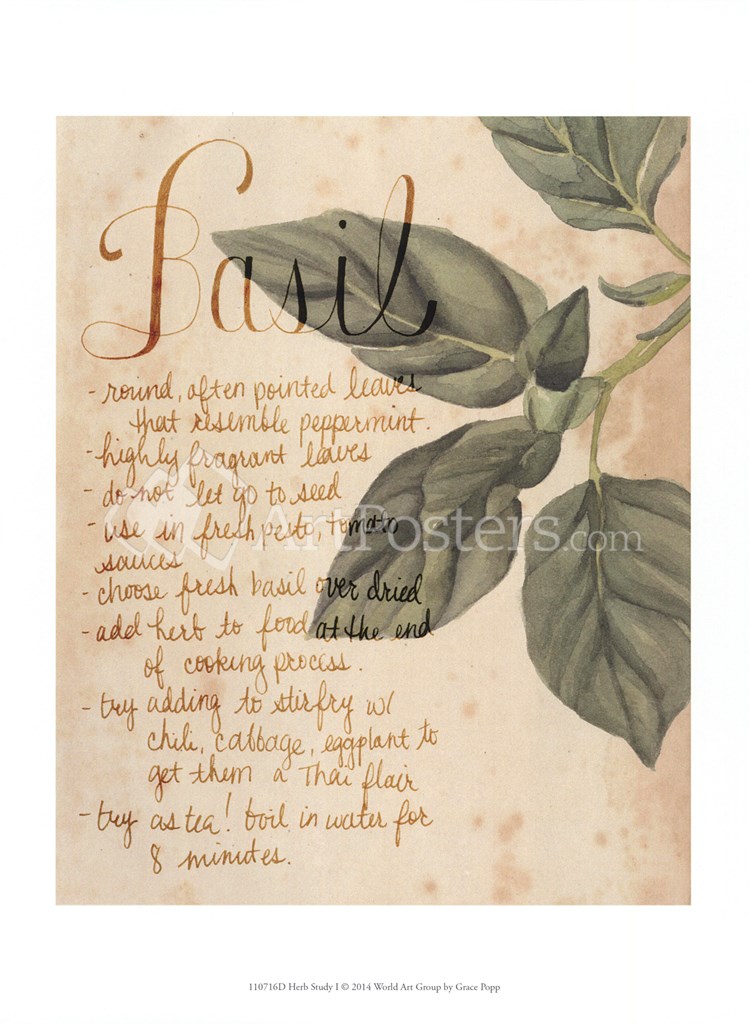 Basil
- round, often pointed leaves
that resemble peppermint.
- highly fragrant leaves
- do not let go to seed
- use in fresh pesto, tomato
sauces
- choose fresh basil over dried
- add herb to food at the end
of cooking process.
- try adding to stirfry w/
chili, cabbage, eggplant to
get them a Thai flair
- try as tea! boil in water for
8 minutes.
ArtPosters.com
110716D Herb Study I © 2014 World Art Group by Grace Popp